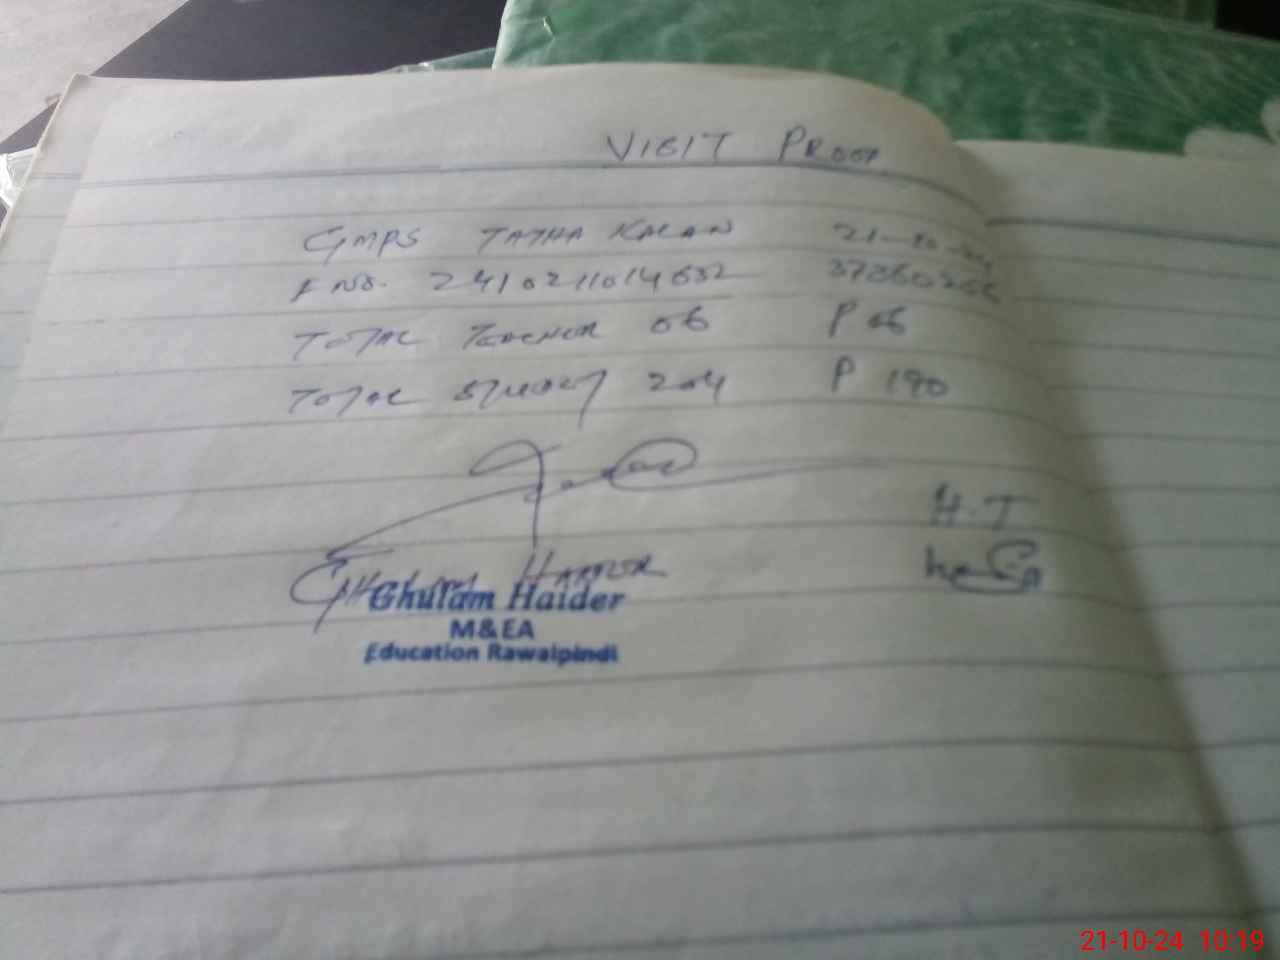 VISIT PROOF
GMPS TATHA KALAN 21-10-24
F NO. 2410211014652
TOTAL TEACHER 06 P 06
TOTAL STUDENT 204 P 190
H.T
Ghulam Haider
M&EA
Education Rawalpindi
21-10-24 10:19